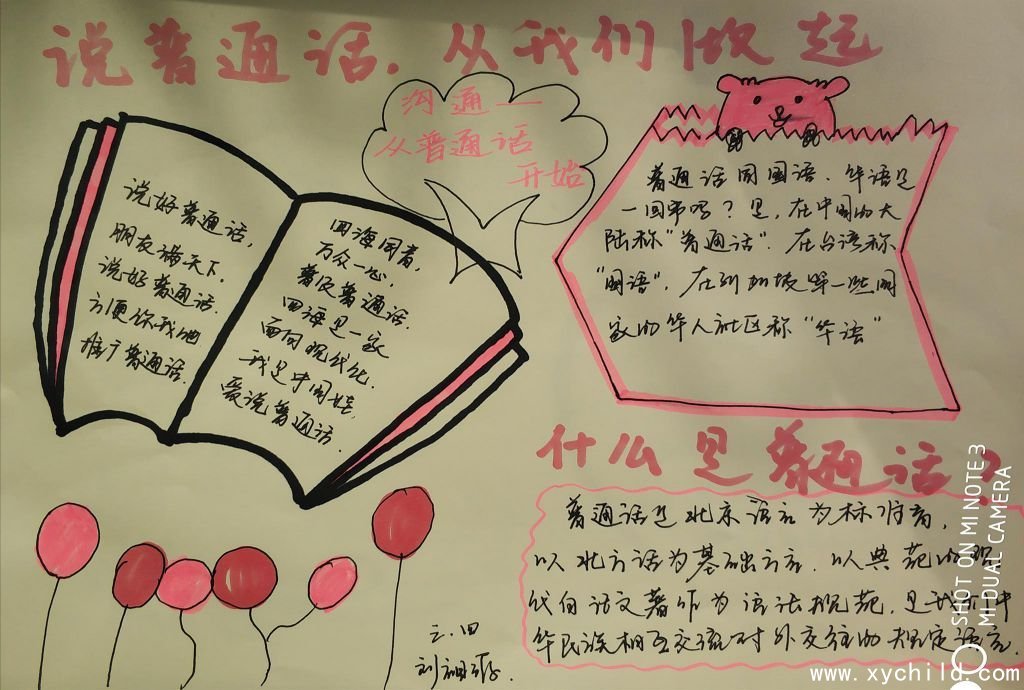 说普通话.从我们做起
沟通一
从普通话
开始
说好普通话,
朋友遍天下.
说好普通话.
方便你我他
推广普通话.
四海同音,
万众一心,
普及普通话.
四海是一家
面向现代化.
我是中国娃,
爱说普通话.
普通话同国语、华语是
一回事吗?是,在中国的大
陆称“普通话”.在台湾称
“国语”,在新加坡等一些国
家的华人社区称“华语”
什么是普通话?
普通话是北京语言为标准音,
以北方话为基础方言.以典范的现
代白话文著作为语法规范,是我们中
华民族相互交流对外交往的规定语言.
三.四
刘
SHOT ON MI NOTE 3
MI DUAL CAMERA
www.xychild.com